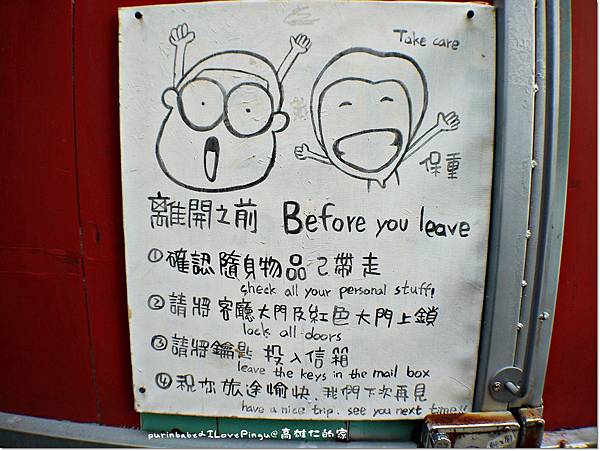 Take care
保重
離開之前 Before you leave
① 確認隨身物品已帶走
check all your personal stuff!
② 請將客廳大門及紅色大門上鎖
lock all doors
③ 請將鑰匙投入信箱
leave the keys in the mail box
④ 祝你旅途愉快,我們下次再見
have a nice trip. see you next time!!
purinbabe♂ILovePingu@高雄仁的家